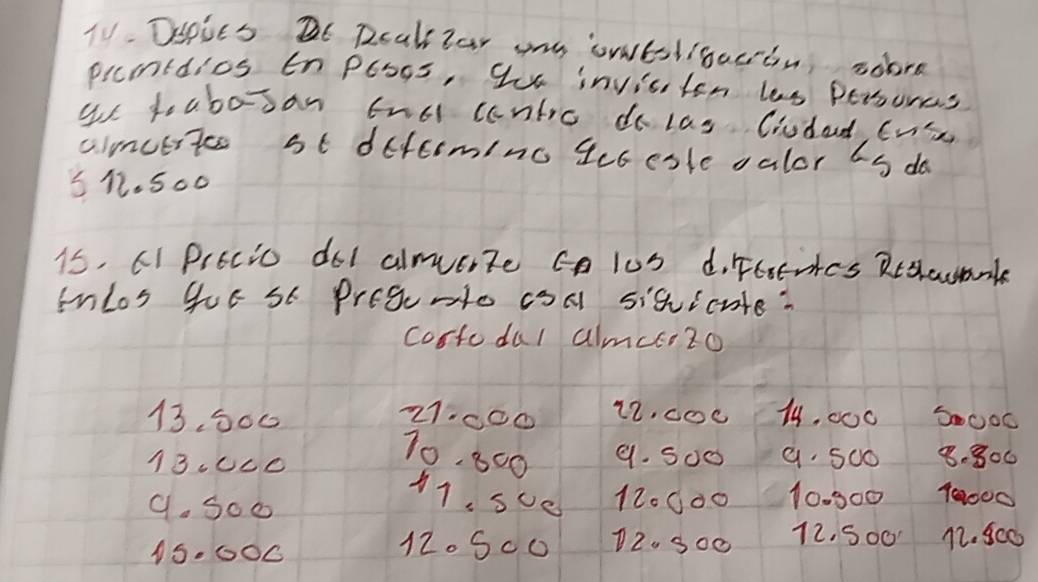 14. Despues De Realizar una investigación, sobre
promedios en pesos, que invierten las Personas
que trabajan en el centro de las Ciudad en su
almuerzo se determino que este valor es de
$ 12.500
15. el Precio del almuerzo en los diferentes Restaurante
en los que se Pregunto es el siguiente:
costo del almuerzo
13.500 21.000 22.000 14.000
13.000 10.800 9.500 9.500 8.800
9.500 11.500 12.000 10.900
15.000 12.500 12.500 12.500 12.500